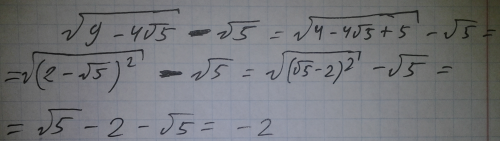 √(9 - 4√5) - √5 = √(4 - 4√5 + 5) - √5 =
= √((2 - √5)²) - √5 = √((√5 - 2)²) - √5 =
= √5 - 2 - √5 = -2